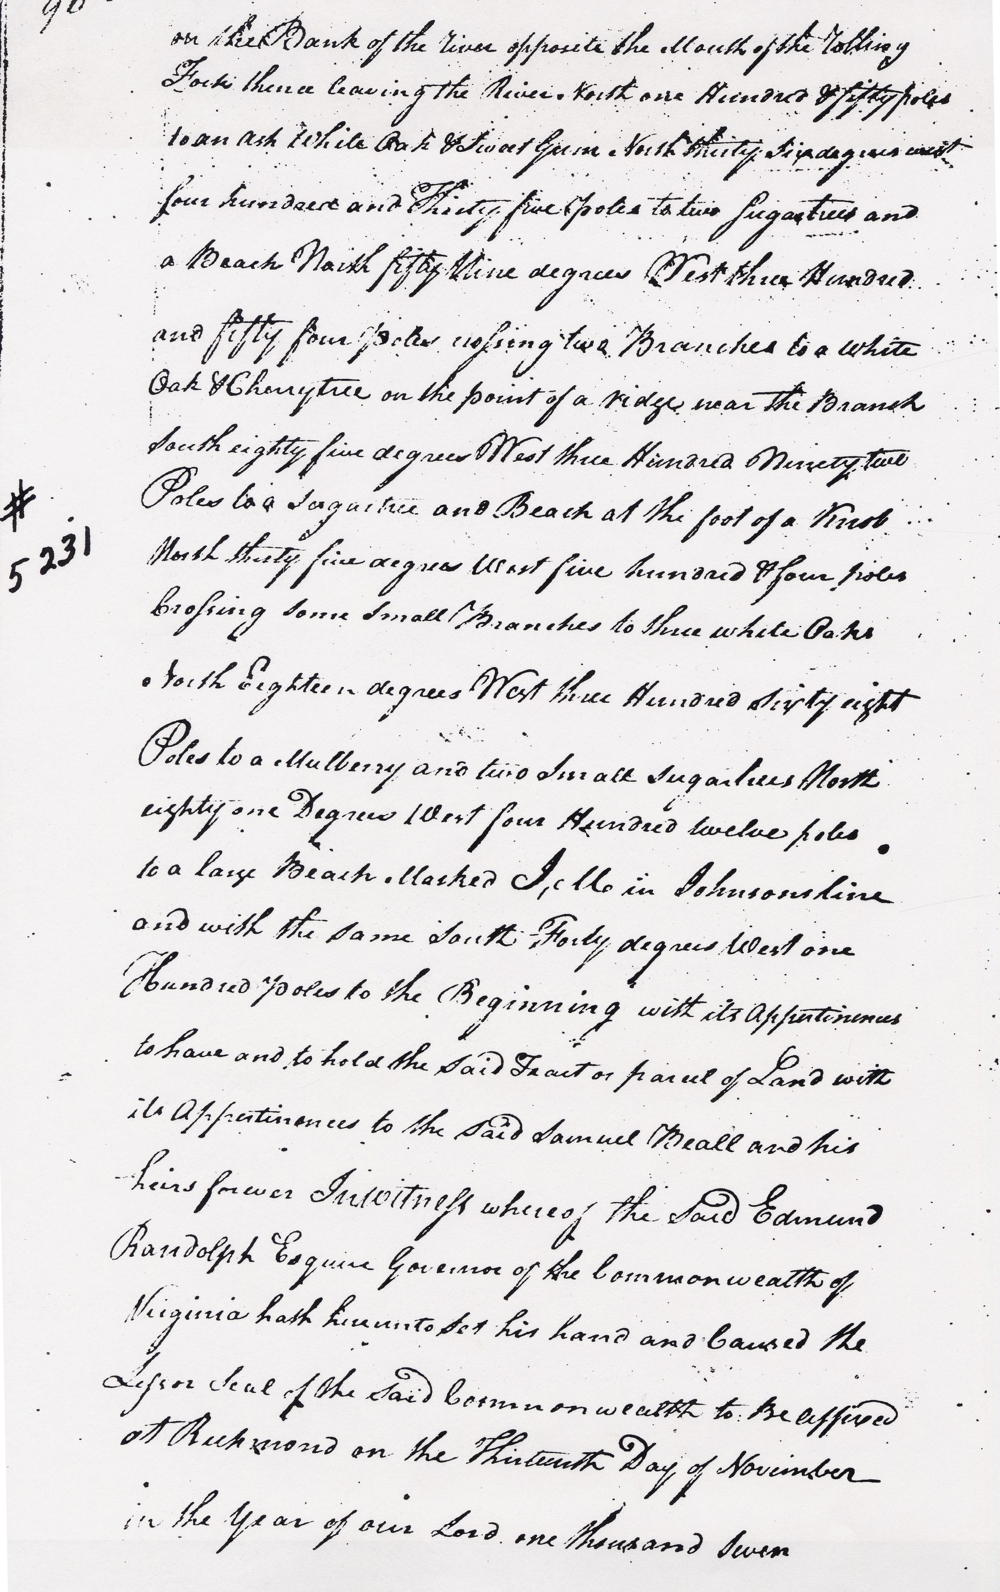 on the Bank of the River opposite the Mouth of the Rolling
Fork thence leaving the River North one Hundred & fifty poles
to an ash White Oak & Sweet Gum North thirty Six degrees west
four hundred and Thirty five poles to two Sugartrees and
a Beach North fifty Nine degrees West three Hundred
and fifty four Poles crossing two Branches to a White
Oak & Cherrytree on the point of a ridge near the Branch
South eighty five degrees West three Hundred Ninety two
Poles to a Sugartree and Beach at the foot of a Knob
#
5231
North thirty five degrees West five hundred & four poles
Crossing some small Branches to three white Oaks
North Eighteen degrees West three Hundred Sixty eight
Poles to a Mulberry and two Small Sugartrees North
eighty one Degrees West four Hundred twelve poles
to a large Beach Marked in Johnsons line
and with the same South Forty degrees West one
Hundred poles to the Beginning with its Appertinences
to have and to hold the said Tract or parcel of Land with
its Appertinences to the said Samuel Beall and his
heirs forever In witness whereof the said Edmund
Randolph Esquire Governor of the Commonwealth of
Virginia hath hereunto Set his hand and Caused the
Lesser Seal of the said Commonwealth to Be affixed
at Richmond on the Thirteenth Day of November
in the Year of our Lord one thousand Seven